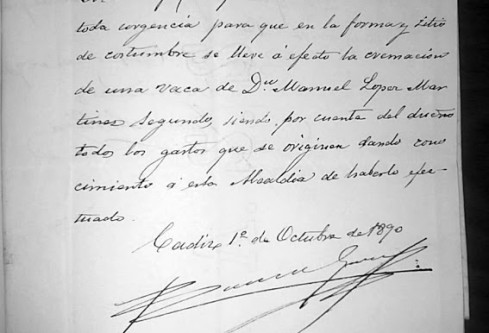 toda urgencia para que en la forma y sitio
de costumbre se lleve á efecto la cremación
de una vaca de Dn Manuel Lopez Mar-
tinez Segundo, siendo por cuenta del dueño
todos los gastos que se originen dando cono
cimiento á esta Alcaldia de haberlo efec-
tuado.
Cadiz 1º de Octubre de 1890